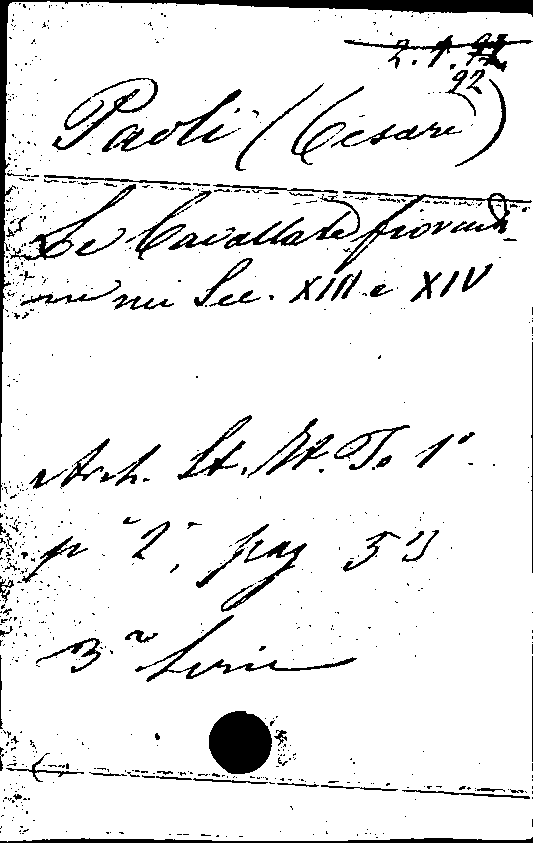 2.1.92
92
Paoli (Cesare)
Le Cavallate fiorenti-
ne nei Sec. XIII e XIV
Arch. St. It. To 1º
pª 2ª, pag 53
3ª Serie